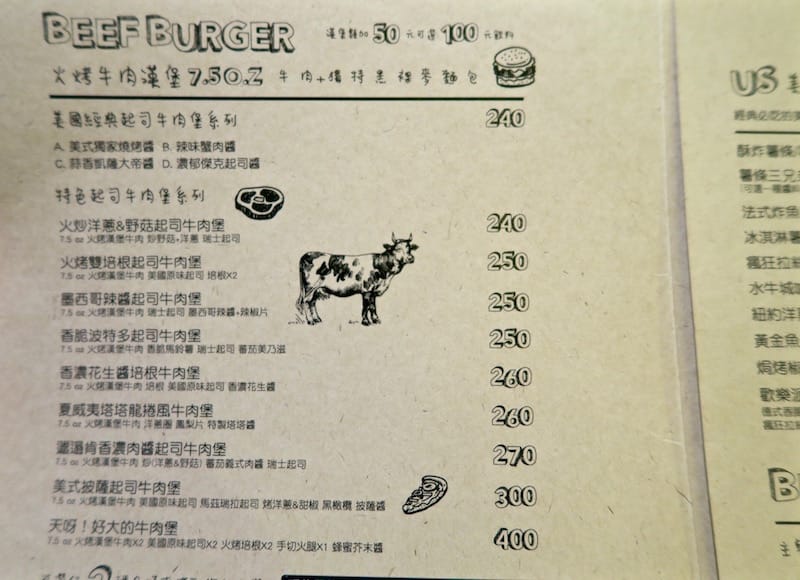 BEEF BURGER 漢堡類加50元可選100元飲料
火烤牛肉漢堡7.5O.Z 牛肉+獨特黑裸麥麵包
美國經典起司牛肉堡系列 240
A. 美式獨家燒烤醬 B. 辣味蟹肉醬
C. 蒜香凱薩大帝醬 D. 濃郁傑克起司醬
特色起司牛肉堡系列
火炒洋蔥&野菇起司牛肉堡 240
7.5 oz 火烤漢堡牛肉 炒野菇+洋蔥 瑞士起司
火烤雙培根起司牛肉堡 250
7.5 oz 火烤漢堡牛肉 美國原味起司 培根X2
墨西哥辣醬起司牛肉堡 250
7.5 oz 火烤漢堡牛肉 瑞士起司 墨西哥辣醬+辣椒片
香脆波特多起司牛肉堡 250
7.5 oz 火烤漢堡牛肉 香脆馬鈴薯 瑞士起司 蕃茄美乃滋
香濃花生醬培根牛肉堡 260
7.5 oz 火烤漢堡牛肉 培根 美國原味起司 香濃花生醬
夏威夷塔塔龍捲風牛肉堡 260
7.5 oz 火烤漢堡牛肉 洋蔥圈 鳳梨片 特製塔塔醬
邋遢肯香濃肉醬起司牛肉堡 270
7.5 oz 火烤漢堡牛肉 炒(洋蔥&野菇) 蕃茄義式肉醬 瑞士起司
美式披薩起司牛肉堡 300
7.5 oz 火烤漢堡牛肉 美國原味起司 馬茲瑞拉起司 烤洋蔥&甜椒 黑橄欖 披薩醬
天呀！好大的牛肉堡 400
7.5 oz 火烤漢堡牛肉X2 美國原味起司X2 火烤培根X2 手切火腿X1 蜂蜜芥末醬
US 美
經典必吃的美
酥炸薯條
薯條三兄
(可選一種醬
法式炸魚
冰淇淋薯
瘋狂拉
水牛城
紐約洋
黃金魚
焗烤椒
歡樂派
德式香腸
瘋狂拉
B
主